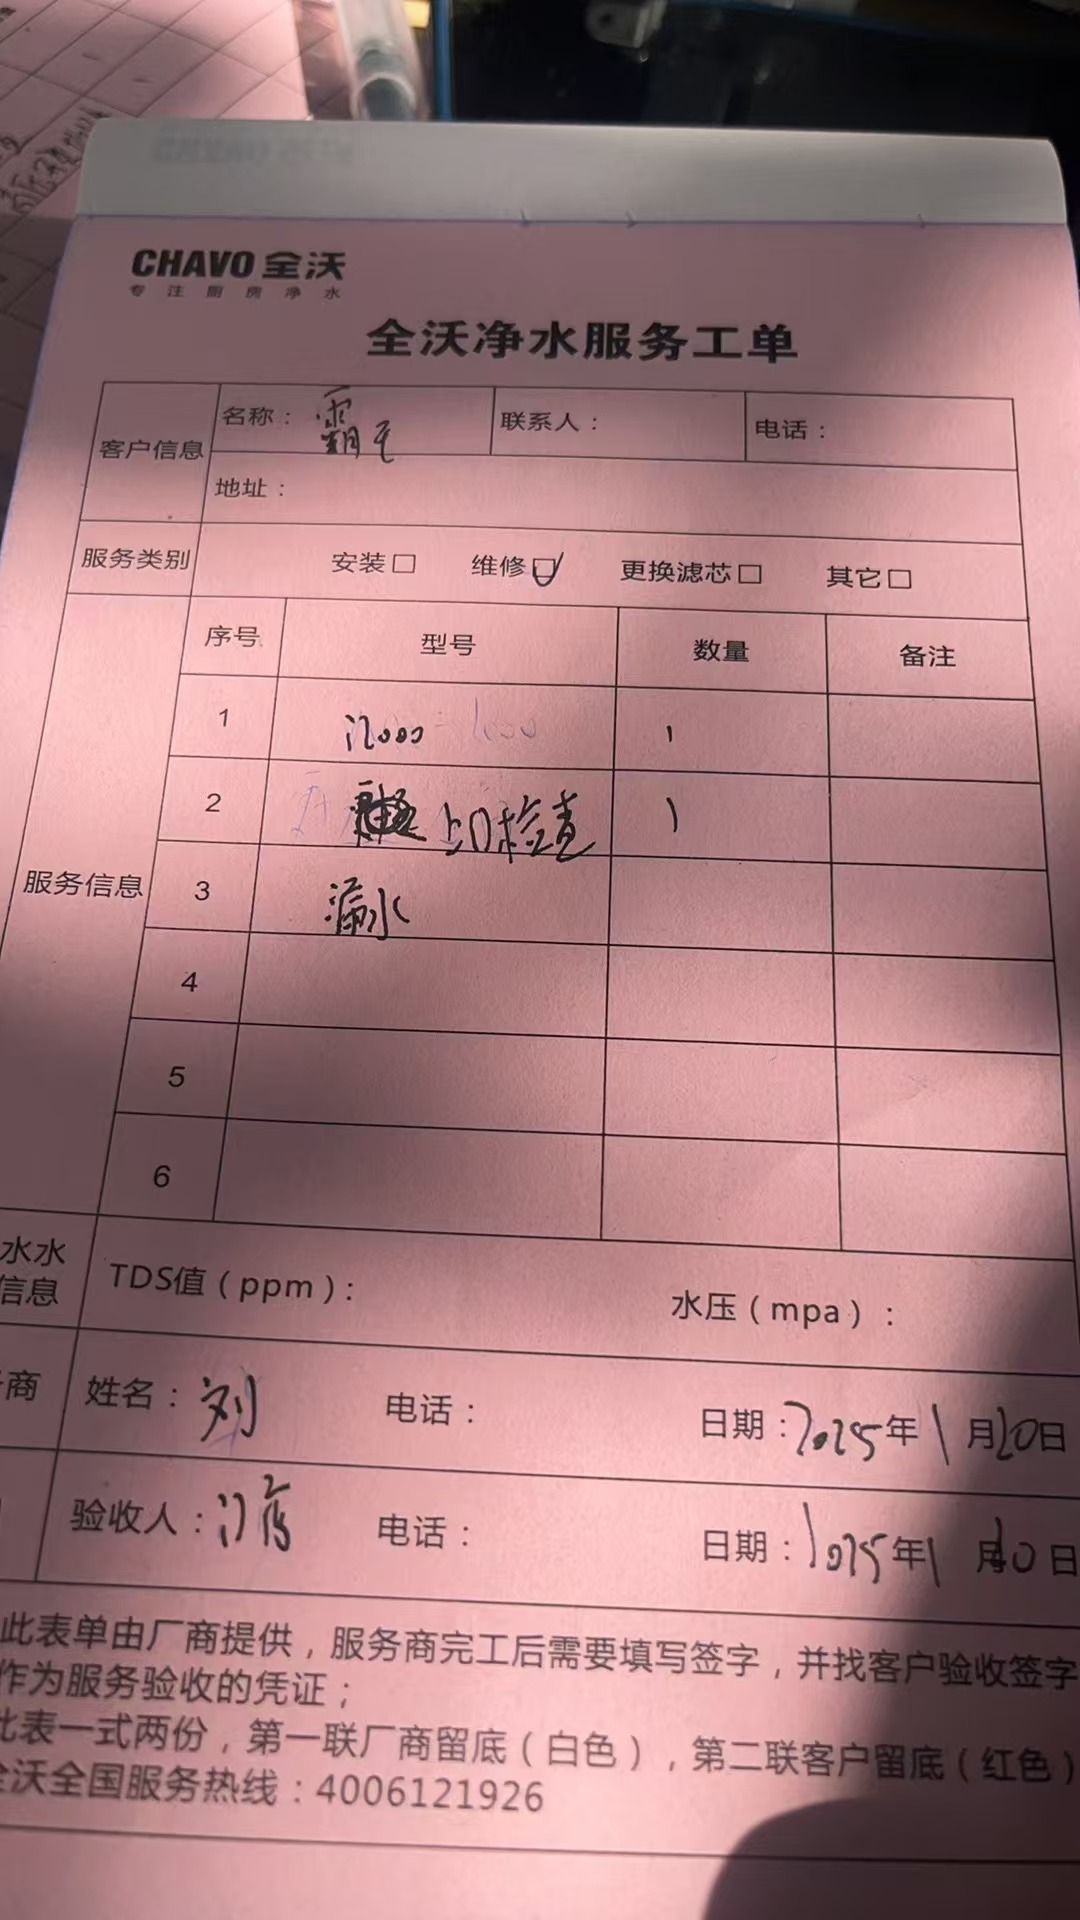 CHAVO 全沃
专注厨房净水
全沃净水服务工单
客户信息 名称：霸王 联系人： 电话：
地址：
服务类别 安装□ 维修☑ 更换滤芯□ 其它□
服务信息 序号 型号 数量 备注
1 1
2 上门检查 1
3 漏水
4
5
6
水水
信息
TDS值（ppm）： 水压（mpa）：
商 姓名：刘 电话： 日期：2025年1月20日
验收人： 电话： 日期：2025年1月20日
此表单由厂商提供，服务商完工后需要填写签字，并找客户验收签字
作为服务验收的凭证；
此表一式两份，第一联厂商留底（白色），第二联客户留底（红色）
全沃全国服务热线：4006121926